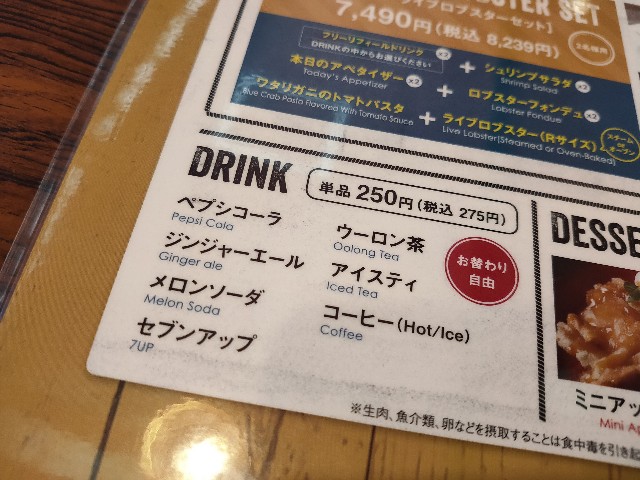 STER SET
7,490円(税込 8,239円)
ライブロブスターセット]
2名様用
フリーリフィールドリンク ×2
DRINKの中からお選びください
+
シュリンプサラダ ×2
Shrimp Salad
本日のアペタイザー ×2
Today's Appetizer
+
ロブスターフォンデュ ×2
Lobster Fondue
ワタリガニのトマトパスタ
Blue Crab Pasta Flavored With Tomato Sauce
+
ライブロブスター(Rサイズ)
Live Lobster[Steamed or Oven-Baked]
スチーム
or
オーブン
DRINK
単品 250円(税込 275円)
ペプシコーラ
Pepsi Cola
ジンジャーエール
Ginger ale
メロンソーダ
Melon Soda
セブンアップ
7UP
ウーロン茶
Oolong Tea
アイスティ
Iced Tea
コーヒー(Hot/Ice)
Coffee
お替わり
自由
DESSE
ミニアッ
Mini Ap
※生肉、魚介類、卵などを摂取することは食中毒を引き起